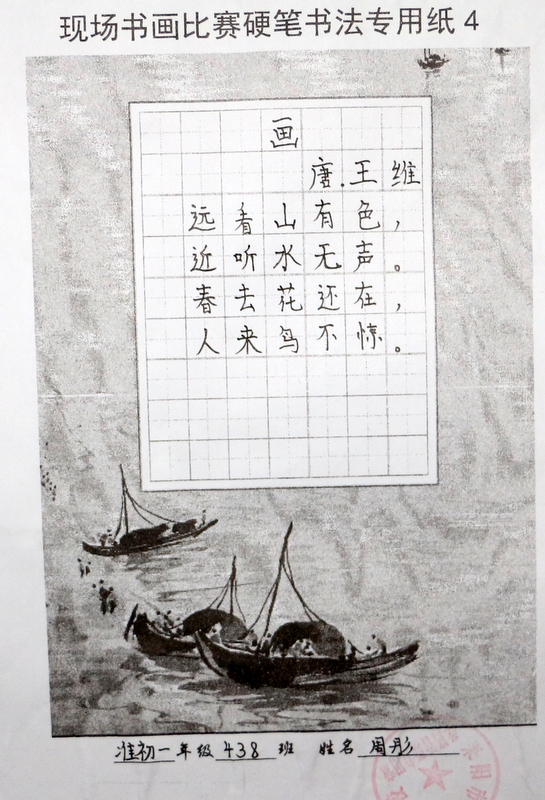 现场书画比赛硬笔书法专用纸4
画
唐.王维
远看山有色，
近听水无声。
春去花还在，
人来鸟不惊。
准初一年级 438 班 姓名 周彤